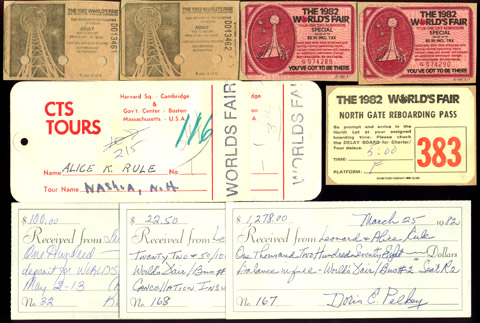 D013462
ADULT
THE 1982
WORLD'S FAIR
SPECIAL
$9.95 INCL. TAX
574285
YOU'VE GOT TO BE THERE
THE 1982
WORLD'S FAIR
SPECIAL
$9.95 INCL. TAX
YOU'VE GOT TO BE THERE
CTS
TOURS
Harvard Sq. - Cambridge
&
Gov't. Center - Boston
Massachusetts - U.S.A.
116
215
Name ALICE K. RULE
Tour Name NASHUA, N.H
WORLDS FAIR
WORLDS FAIR
THE 1982 WORLD'S FAIR
NORTH GATE REBOARDING PASS
Be prompt and arrive in the
North Lot at your assigned
boarding time. Please check
the DELAY BOARD for Charter/
Tour delays.
TIME: 5:00
PLATFORM: F
383
$ 100.00
Received from
One Hundred
deposit for WORLD'S
May 2-13
No. 32
$ 22.50
Received from
TWENTY TWO + 50/100
World's Fair/Bus #
Cancellation Ins
No. 168
$ 1,278.00 March 25, 1982
Received from Leonard & Alice Rule
One Thousand Two Hundred Seventy Eight Dollars
Balance in full - World's Fair/Bus #2 Seat R2
No. 167 Doris E. Pelkey